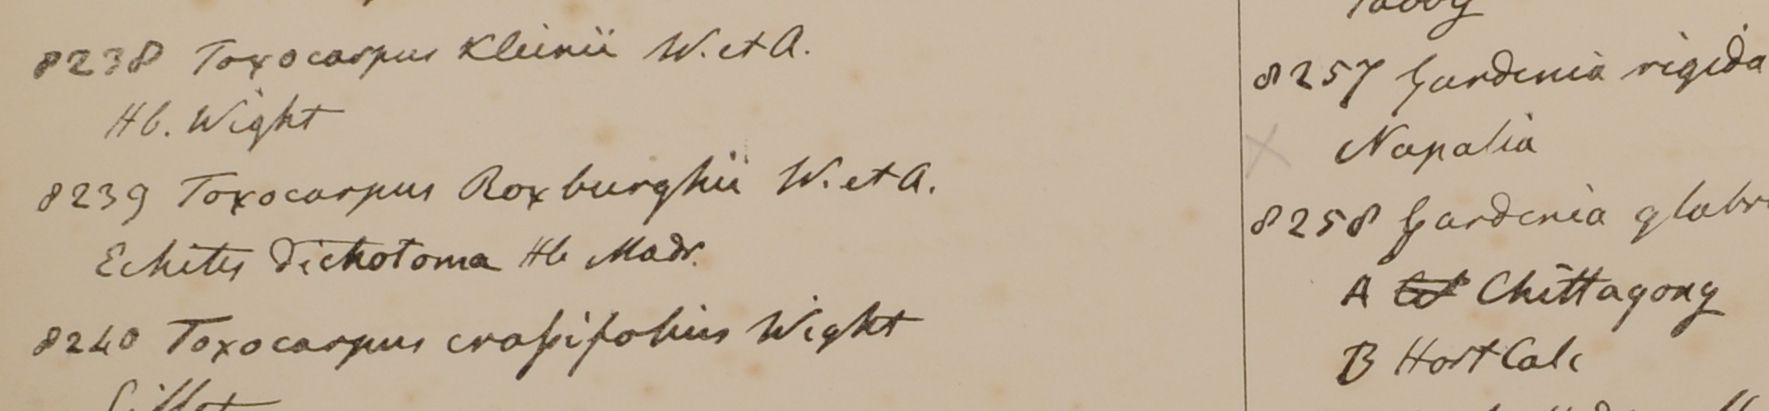 8238 Toxocarpus Kleinii W. et A.
Hb. Wight
8239 Toxocarpus Roxburghii W. et A.
Echites dichotoma Hb Madr.
8240 Toxocarpus craſsifolius Wight
8257 Gardenia rigida
Napalia
8258 Gardenia glabr
A Chittagong
B Hort Calc